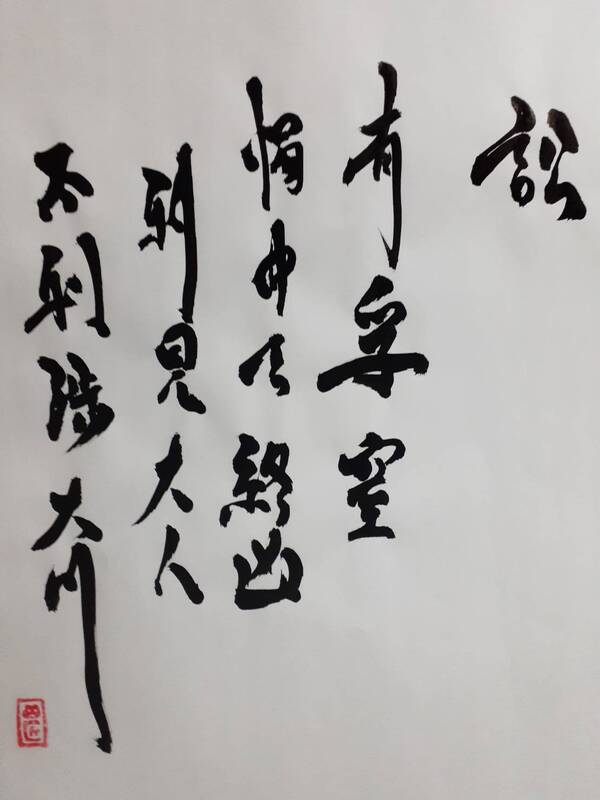 訟
有孚窒
惕中吉終凶
利見大人
不利涉大川